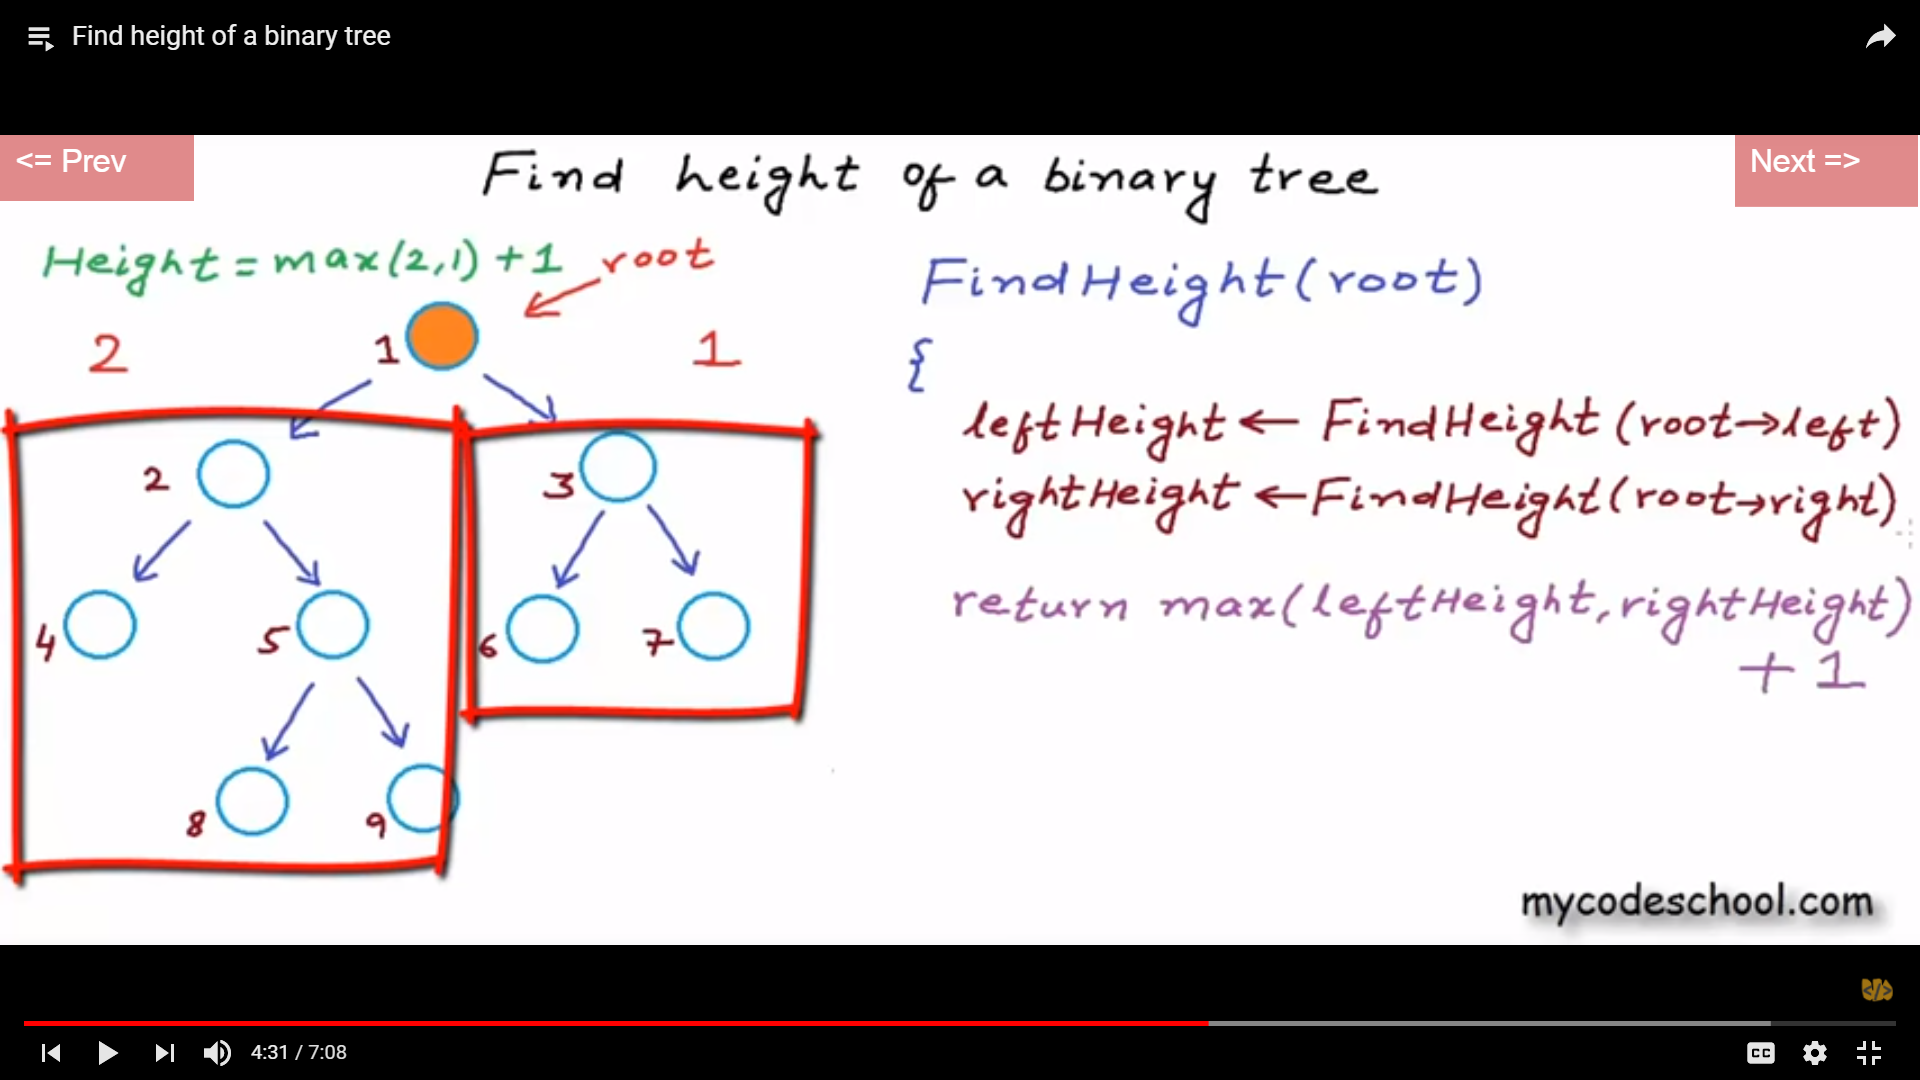 Find height of a binary tree
<= Prev
Next =>
Find height of a binary tree
Height = max(2,1) + 1
root
2
1
1
2
3
4
5
6
7
8
9
FindHeight(root)
{
leftHeight ← FindHeight(root→left)
rightHeight ← FindHeight(root→right)
return max(leftHeight, rightHeight)
+ 1
mycodeschool.com
</>
4:31 / 7:08
CC